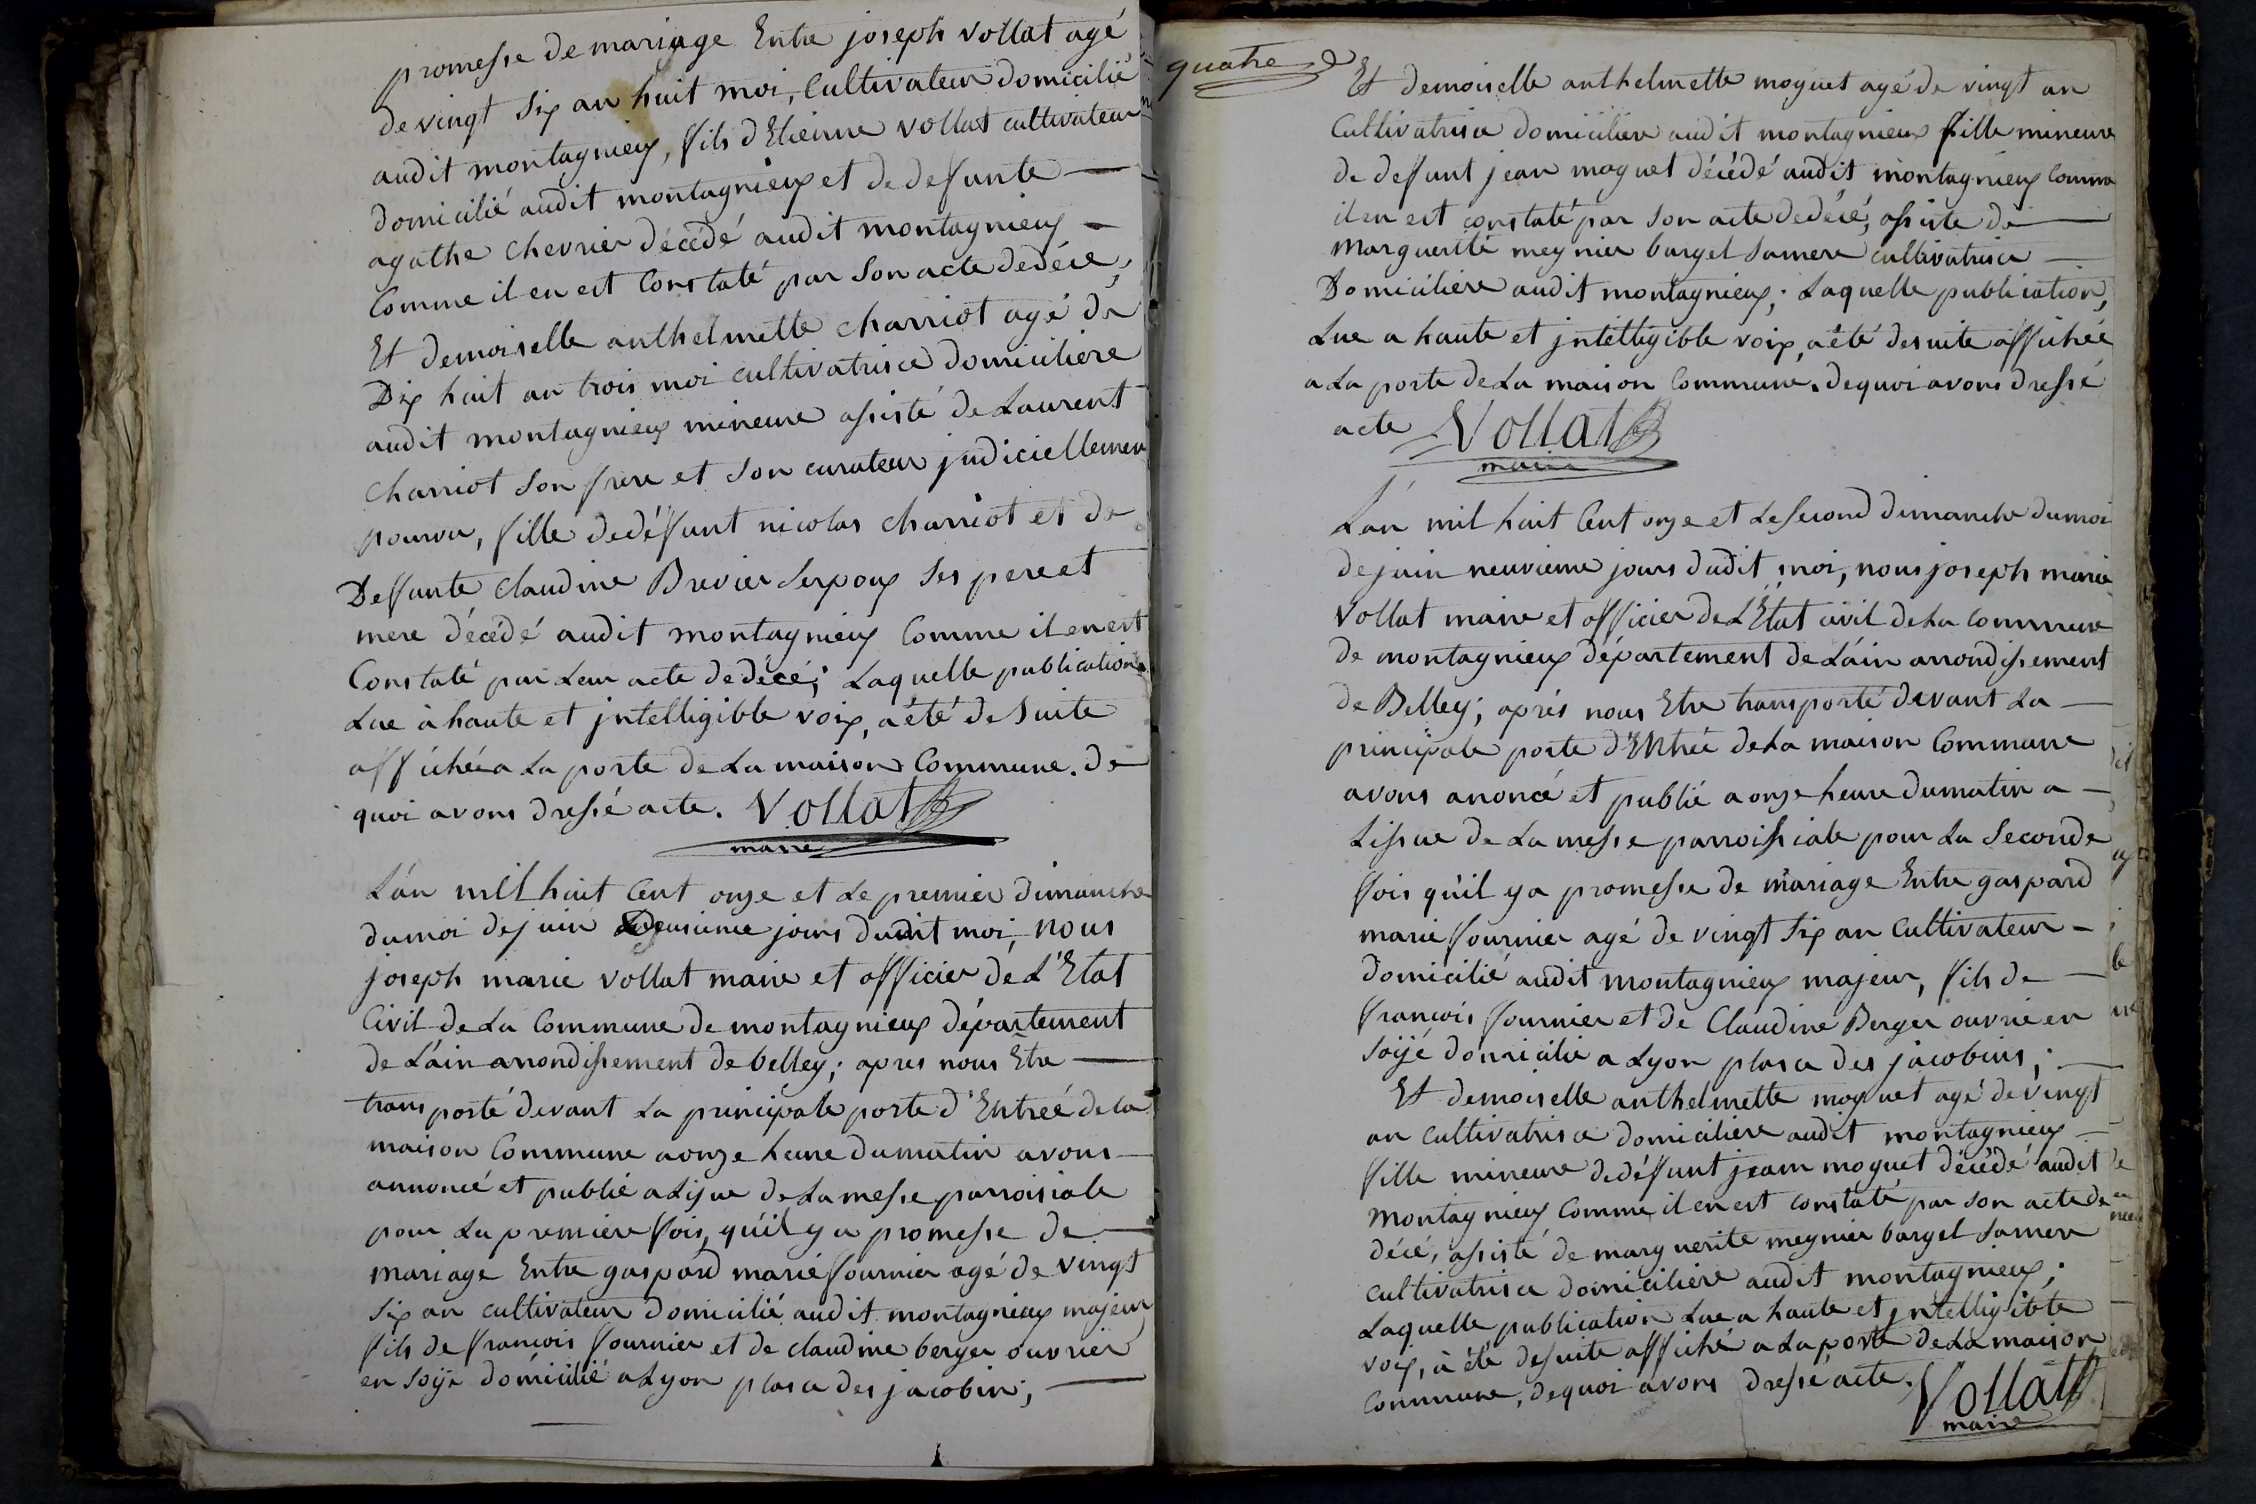 promesse de mariage Entre joseph vollat agé
de vingt six an huit moi, Cultivateur domicilié
audit montagnieux, fils d'Etienne vollat cultivateur
domicilié audit montagnieux et de defunte
agathe chevrier décédé audit montagnieux
Comme il en est Constaté par Son acte de décé,
Et demoiselle anthelmette charriot agé de
Dix huit an trois moi cultivatrice domiciliere
audit montagnieux mineure assisté de Laurent
charriot Son frere et Son curateur judiciellemen
pourvu, fille de défunt nicolas charriot et de
Deffunte Claudine Brevier Serpoux Ses pere et
mere décédé audit montagnieux Comme il en est
Constaté par Leur acte de décé; Laquelle publication
Lue à haute et jntelligible voix, a été de Suite
affichée a La porte de La maison Commune. de
quoi avons dressé acte. Vollat
maire
L'an mil huit Cent onze et Le premier dimanche
du moi de juin Deusieme jours dudit moi, nous
joseph marie vollat maire et officier de L'Etat
Civil de La Commune de montagnieux département
de L'ain arrondissement de belley; apres nous Etre
transporté devant La principale porte d'Entreé de la
maison Commune a onze heure du matin avons
annoncé et publié a Lisue de La messe parroisiale
pour La premiere fois, qu'il y a promesse de
mariage Entre gaspard marie fournier agé de vingt
Six an cultivateur domicilié audit montagnieux majeur
fils de françois fournier et de claudine berger ouvrier
en Soije domicilié a Lyon place des jacobin;
quatre
Et demoiselle anthelmette moguet agé de vingt an
Cultivatrice domiciliere audit montagnieux fille mineure
de deffunt jean moguet décédé audit montagnieux Comme
il en est constaté par Son acte de décé, assiste de
Marguerite meynier barget Sa mere cultivatrice
Domiciliere audit montagnieux; Laquelle publication,
Lue a haute et jntelligible voix, a été de suite affichée
a La porte de La maison Commune. de quoi avons dressé
acte Vollat
maire
L'an mil huit Cent onze et Le Second dimanche du moi
de juin neuvieme jours dudit moi, nous joseph marie
vollat maire et officier de L'Etat civil de La commune
de montagnieux département de L'ain arrondissement
de Belley; aprés nous Etre transporté devant La
principale porte d'Entrée de La maison Commune
avons anoncé et publié a onze heure du matin a
Lissue de La messe parroissiale pour La Seconde
fois qu'il y a promesse de mariage Entre gaspard
marie fournier agé de vingt Six an Cultivateur
domicilié audit montagnieux majeur, fils de
françois fournier et de Claudine Berger ouvrie en
Soijé domicilie a Lyon place des jacobins;
Et demoiselle anthelmette moguet agé de vingt
an cultivatrice domiciliere audit montagnieux
fille mineure de défunt jean moguet décédé audit
montagnieux Comme il en est constaté par Son acte de
décé, assisté de marguerite meynier barget Sa mere
cultivatrice domiciliere audit montagnieux;
Laquelle publication Lue a haute et jntelligible
voix, à été de suite affiché a La porte de La maison
Commune, de quoi avons dressé acte. Vollat
maire